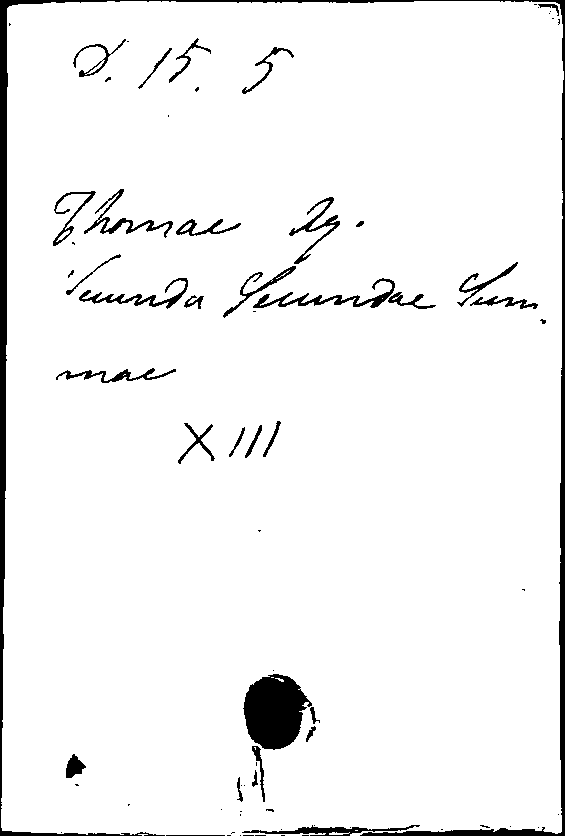 D. 15. 5
Thomae Aq.
Secunda Secundae Sum
mae
XIII